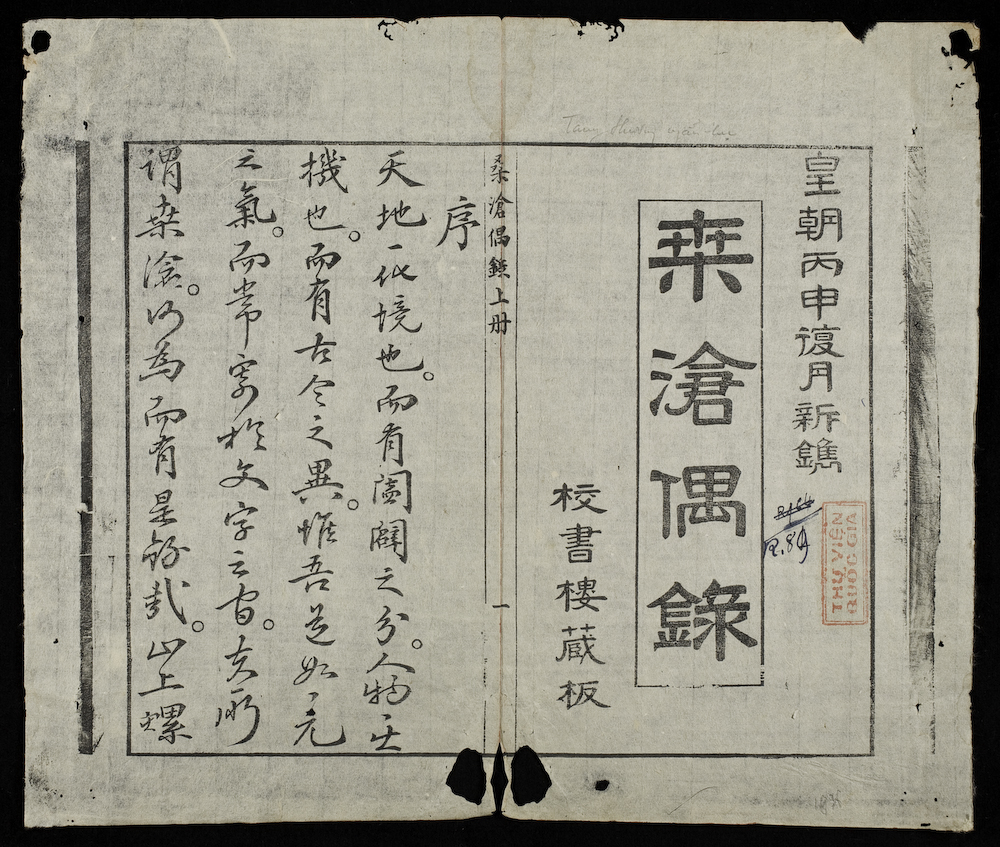 皇朝丙申復月新鐫
桒滄偶錄
校書樓藏板
THƯ VIỆN
QUỐC GIA
R.84
桑滄偶錄上册
一
序
天地一化境也。而有闔闢之分。人物一天
機也。而有古今之異。惟吾道如一元
之氣。而常寓於文字之間。夫所
謂桒滄。何為而有是錄哉。山上螺